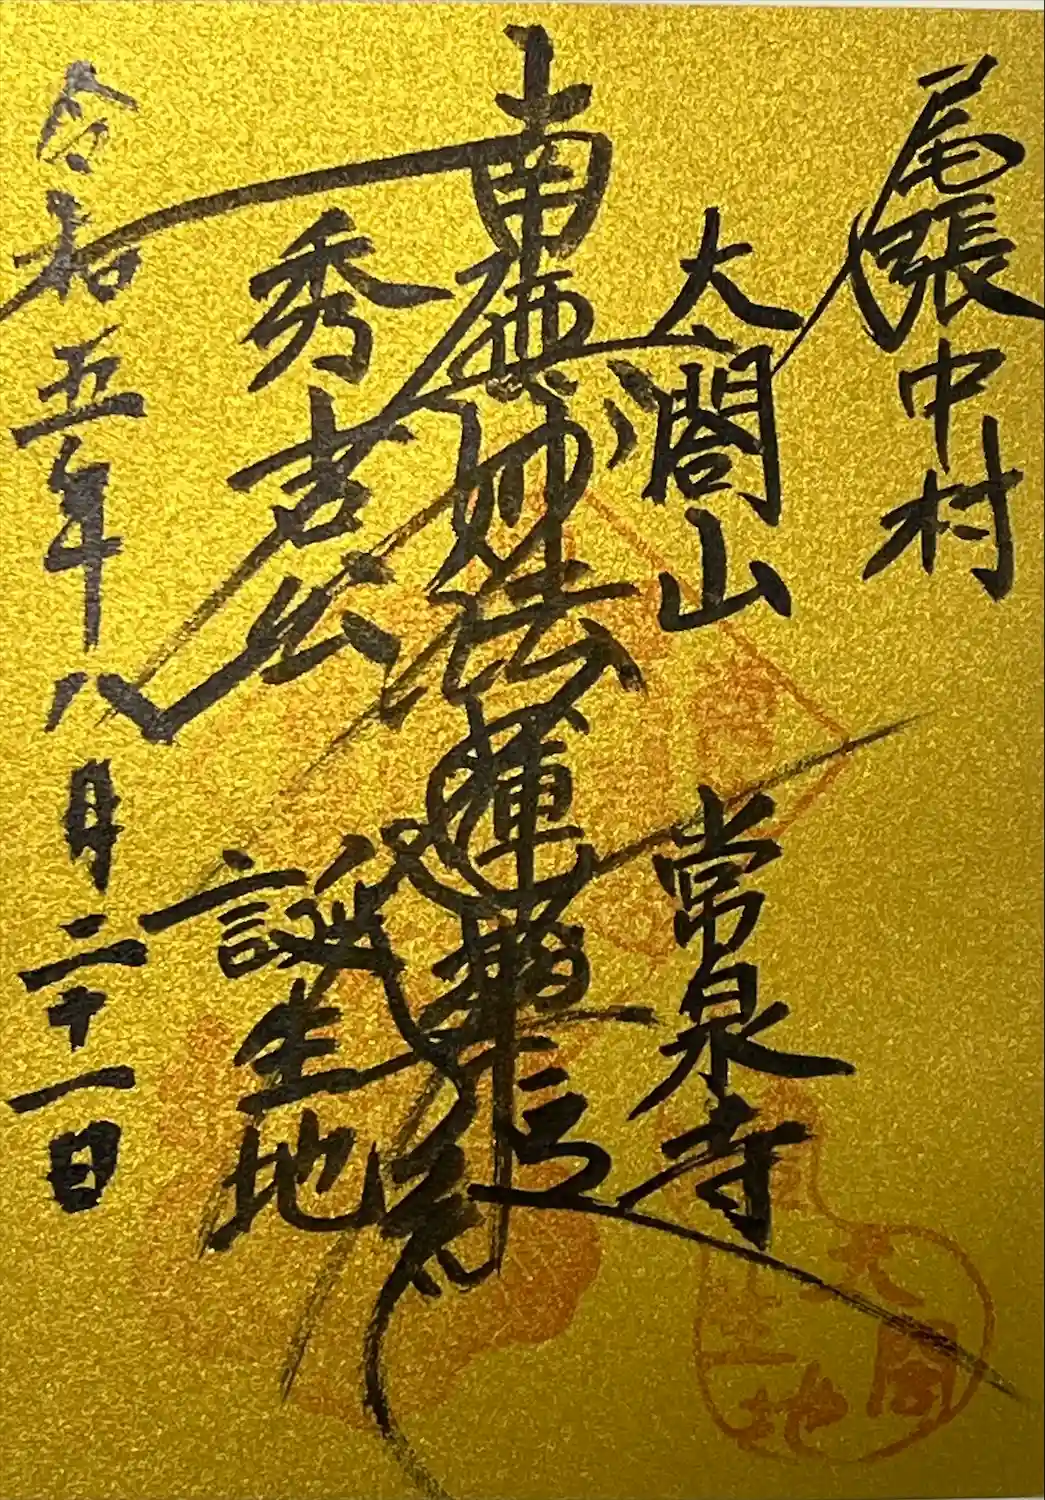 尾張中村
太閤山
常泉寺
南無妙法蓮華経
秀吉公
誕生地
令和五年八月二十一日
太閤
生地